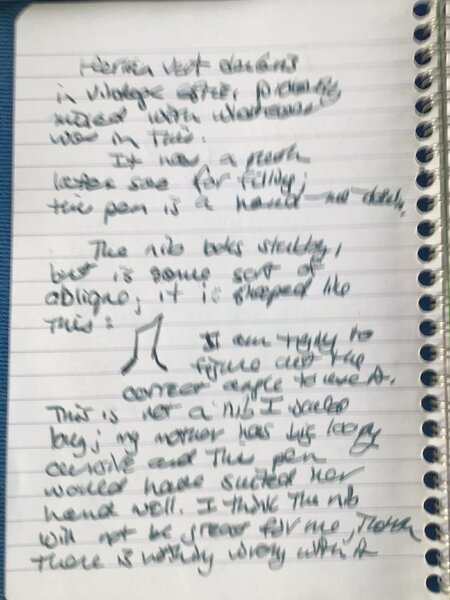 Herbin Vert
in vintage Esties, probably
mixed with whatever
was in this.
It has a fresh
latex sac for filling;
the pen is a hand-me-down.
The nib looks stubby,
but is some sort of
oblique; it is shaped like
this:
I am trying to
figure out the
correct angle to use it.
This is not a nib I would
buy; my mother has big loopy
cursive and the pen
would have suited her
hand well. I think the nib
will not be great for me, though
there is nothing wrong with it